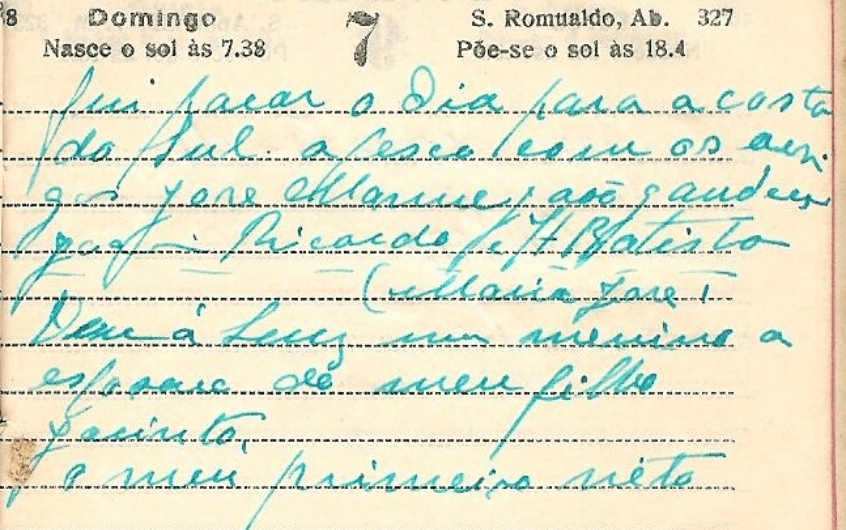 8 Domingo 7 S. Romualdo, Ab. 327
Nasce o sol às 7.38 Põe-se o sol às 18.4
fui pasar o dia para a costa
do Sul a pesca com os ami
gos Jose Manuel João
Ricardo A Batista
(Maria Jose)
Deu á Luz um menino a
esposa de meu filho
Jacinto,
o meu primeiro neto